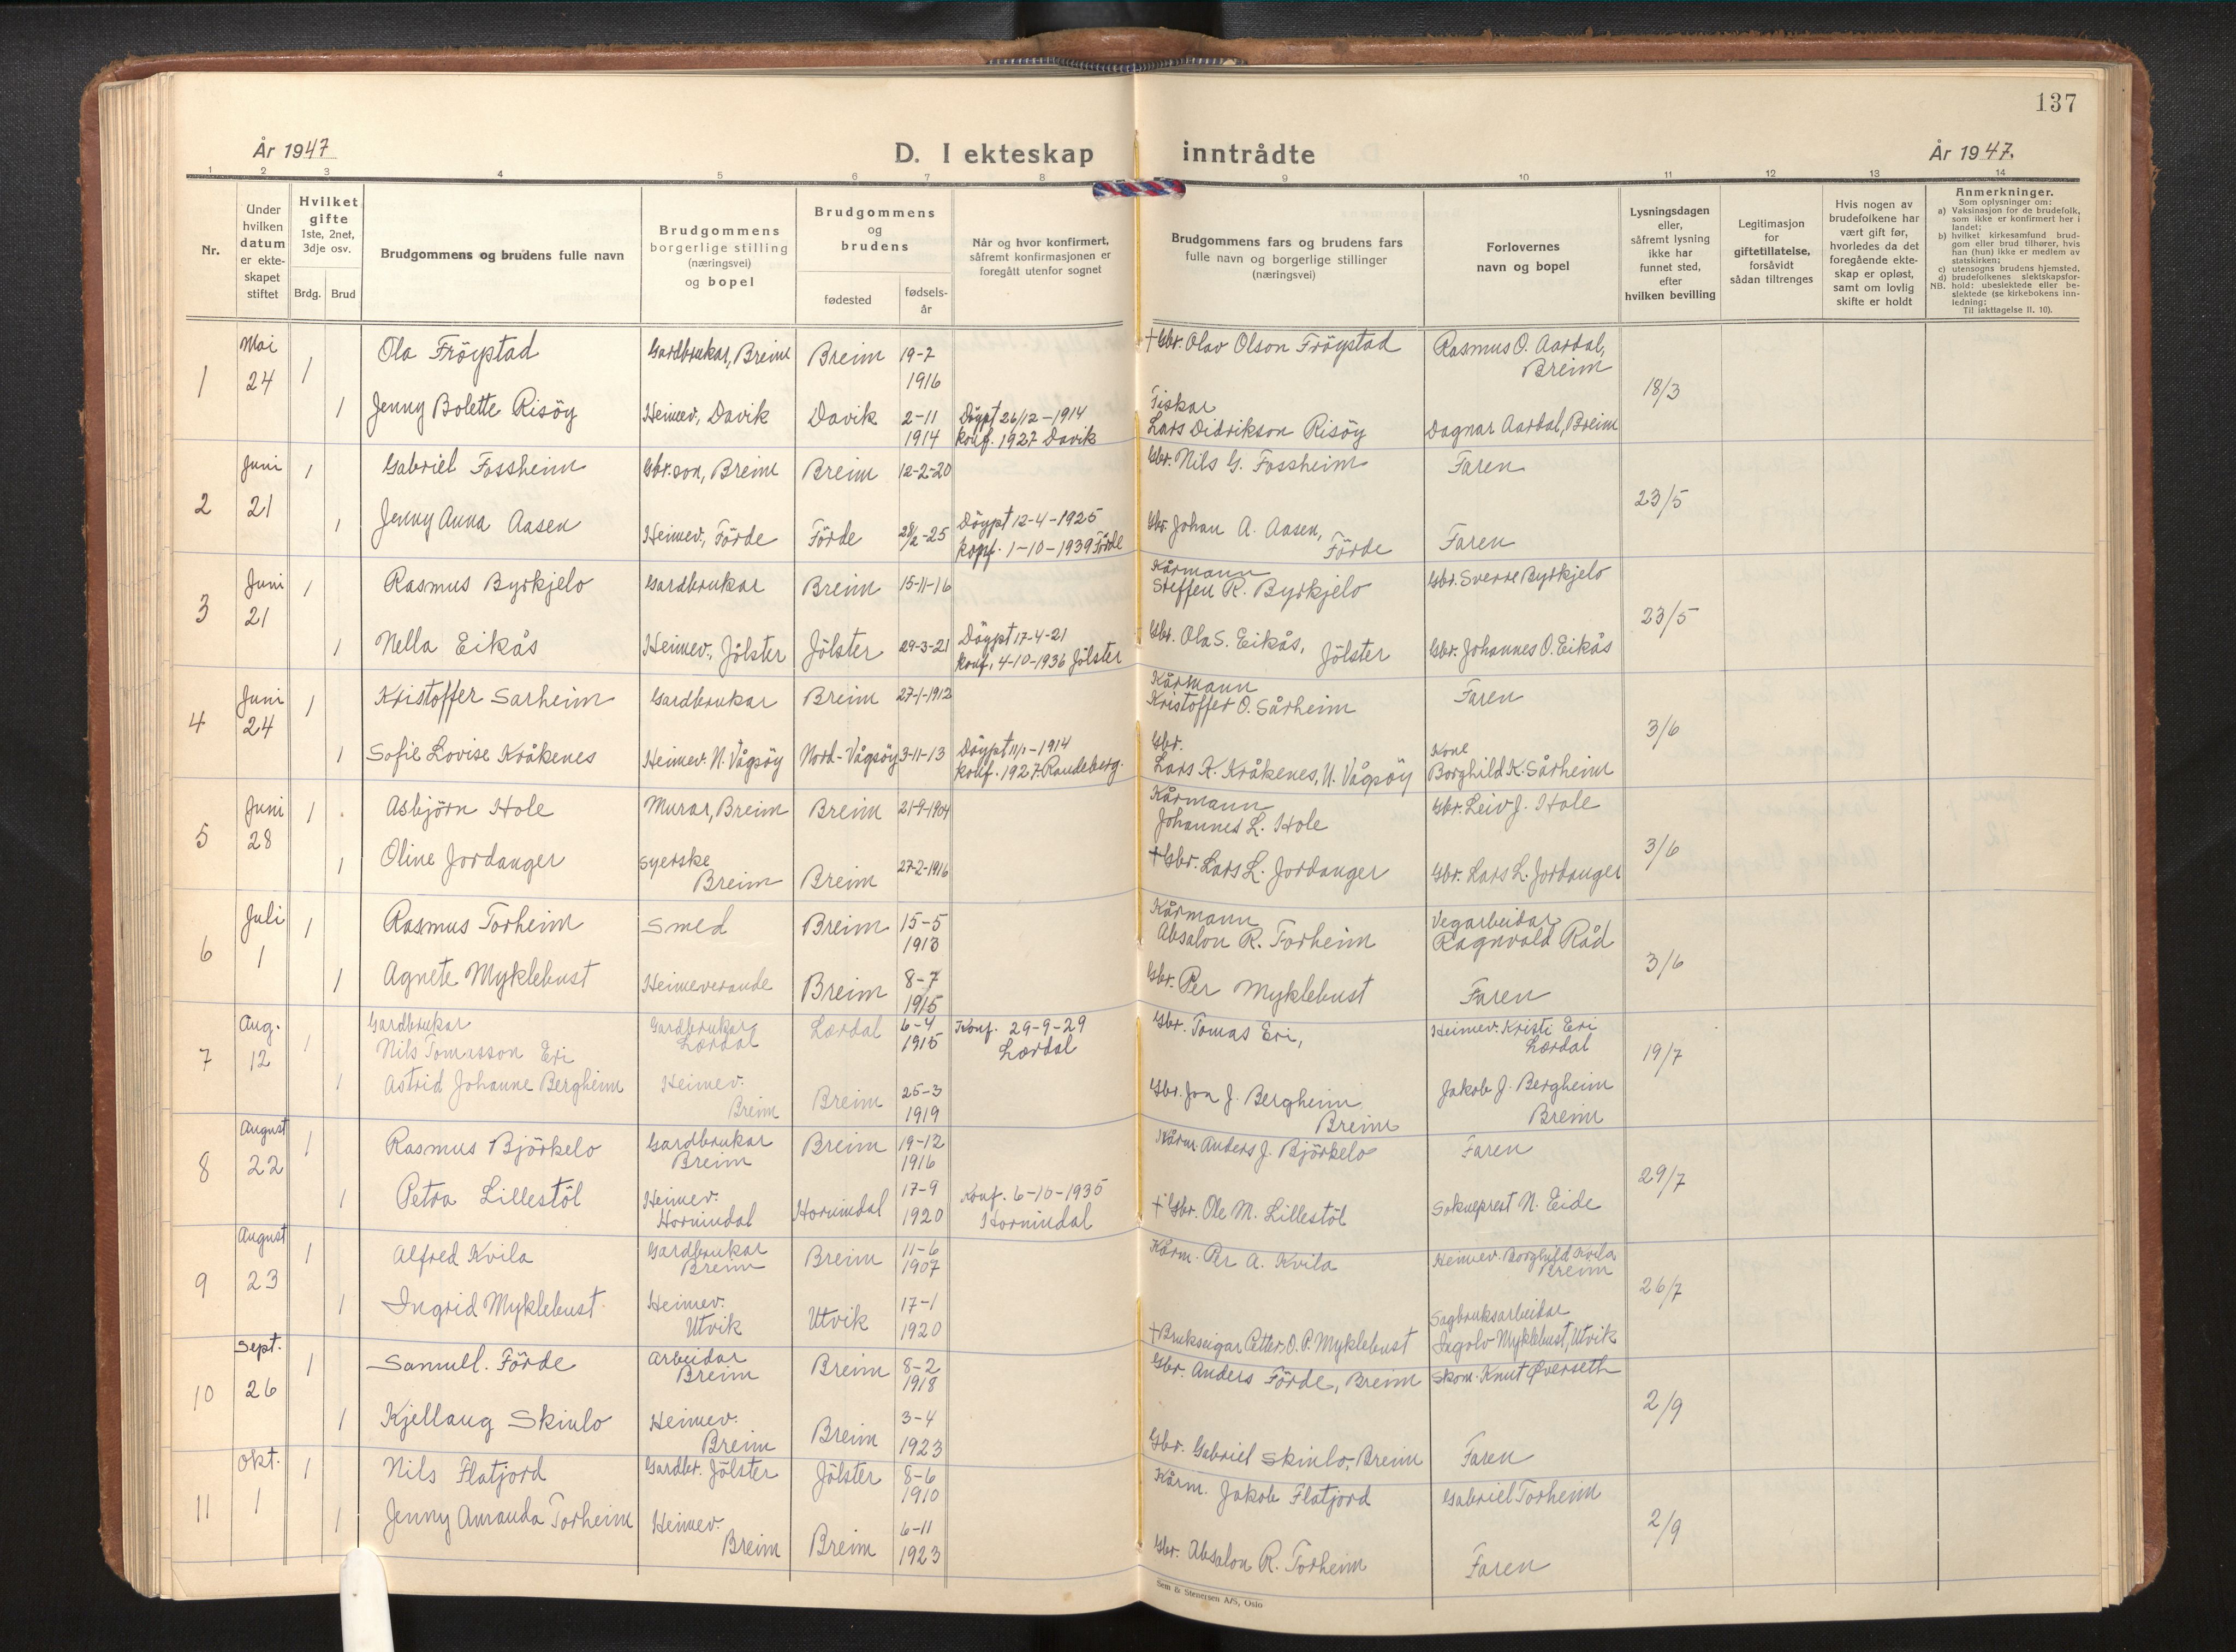 137
År 1947
D. I ekteskap inntrådte
År 1947.
1 2 3 4 5 6 7 8 9 10 11 12 13 14
Nr.
Under
hvilken
datum
er ekte-
skapet
stiftet
Hvilket
gifte
1ste, 2net,
3dje osv.
Brdg. Brud
Brudgommens og brudens fulle navn
Brudgommens
borgerlige stilling
(næringsvei)
og bopel
Brudgommens
og
brudens
fødested
fødsels-
år
Når og hvor konfirmert,
såfremt konfirmasjonen er
foregått utenfor sognet
Brudgommens fars og brudens fars
fulle navn og borgerlige stillinger
(næringsvei)
Forlovernes
navn og bopel
Lysningsdagen
eller,
såfremt lysning
ikke har
funnet sted,
efter
hvilken bevilling
Legitimasjon
for
giftetillatelse,
forsåvidt
sådan tiltrenges
Hvis nogen av
brudefolkene har
vært gift før,
hvorledes da det
foregående ekte-
skap er opløst,
samt om lovlig
skifte er holdt
Anmerkninger.
Som oplysninger om:
a) Vaksinasjon for de brudefolk,
som ikke er konfirmert her i
landet;
b) hvilket kirkesamfund brud-
gom eller brud tilhører, hvis
han (hun) ikke er medlem av
statskirken;
c) utensogns brudens hjemsted.
d) brudefolkenes slektskapsfor-
NB. hold: ubeslektede eller be-
slektede (se kirkebokens inn-
ledning;
Til iakttagelse II, 10).
1 Mai 24 1 Ola Fröystad Gardbrukar, Breim Breim 19-7 1916 +Gbr. Olav Olson Fröystad Rasmus O. Aardal, Breim 18/3
1 Jenny Bolette Risöy Heimev., Davik Davik 2-11 1914 Döypt 26/12-1914 konf. 1927 Davik Fiskar Lars Didrikson Risöy Dagnar Aardal, Breim
2 Juni 21 1 Gabriel Fossheim Gbr.son, Breim Breim 12-2-20 Gbr. Nils G. Fossheim Faren 23/5
1 Jenny Anna Aasen Heimev., Förde Förde 28/2-25 Döypt 12-4-1925 konf. 1-10-1939 Förde Gbr. Johan A. Aasen, Förde Faren
3 Juni 21 1 Rasmus Byrkjelo Gardbrukar Breim 15-11-16 Kårmann Steffen R. Byrkjelo Gbr. Sverre Byrkjelo 23/5
1 Nella Eikås Heimev., Jölster Jölster 29-3-21 Döypt 17-4-21 konf. 4-10-1936 Jölster Gbr. Ola S. Eikås, Jölster Gbr. Johannes O. Eikås
4 Juni 24 1 Kristoffer Sarheim Gardbrukar Breim 27-1-1912 Kårmann Kristoffer O. Sårheim Faren 3/6
1 Sofie Lovise Kråkenes Heimev. N. Vågsöy Nord-Vågsöy 3-11-13 Döypt 11/1-1914 konf. 1927 Raudeberg. Gbr. Lars K. Kråkenes, N. Vågsöy Kone Borghild K. Sårheim
5 Juni 28 1 Asbjörn Hole Murar, Breim Breim 21-9-1904 Kårmann Johannes L. Hole Gbr. Leiv J. Hole 3/6
1 Oline Jordanger Syerske Breim Breim 27-2-1916 +Gbr. Lars L. Jordanger Gbr. Lars L. Jordanger
6 Juli 1 1 Rasmus Torheim Smed Breim 15-5 1913 Kårmann Absalon R. Torheim Vegarbeidar Ragnvald Råd 3/6
1 Agnete Myklebust Heimeverande Breim 8-7 1915 Gbr. Per Myklebust Faren
7 Aug. 12 1 Gardbrukar Nils Tomasson Eri Gardbrukar Lærdal Lærdal 6-4 1915 Konf. 29-9-29 Lærdal Gbr. Tomas Eri, Heimev. Kristi Eri Lærdal 19/7
1 Astrid Johanne Bergheim Heimev. Breim Breim 25-3 1919 Gbr. Jon J. Bergheim Breim Jakob J. Bergheim Breim
8 August 22 1 Rasmus Björkelo Gardbrukar Breim Breim 19-12 1916 Kårm. Anders J. Björkelo Faren 29/7
1 Petra Lillestöl Heimev. Hornindal Hornindal 17-9 1920 Konf. 6-10-1935 Hornindal + Gbr. Ole M. Lillestöl Sokneprest N. Eide
9 August 23 1 Alfred Kvila Gardbrukar Breim Breim 11-6 1907 Kårm. Per A. Kvila Heimev. Borghild Kvila Breim 26/7
1 Ingrid Myklebust. Heimev. Utvik Utvik 17-1 1920 +Brukseigar Petter O. P. Myklebust Sagbruksarbeidar Ingolv Myklebust, Utvik
10 Sept. 26 1 Samuel. Förde Arbeidar Breim Breim 8-2 1918 Gbr. Anders Förde, Breim Skom. Knut Øverseth 2/9
1 Kjellaug Skinlo Heimev. Breim Breim 3-4 1923 Gbr. Gabriel Skinlo, Breim Faren
11 Okt. 1 1 Nils Flatjord Gardbr. Jölster Jölster 8-6 1910 Kårm. Jakob Flatjord Gabriel Torheim 2/9
1 Jenny Amanda Torheim Heimev. Breim Breim 6-11 1923 Gbr. Absalon R. Torheim Faren
Sem & Stenersen A/S, Oslo